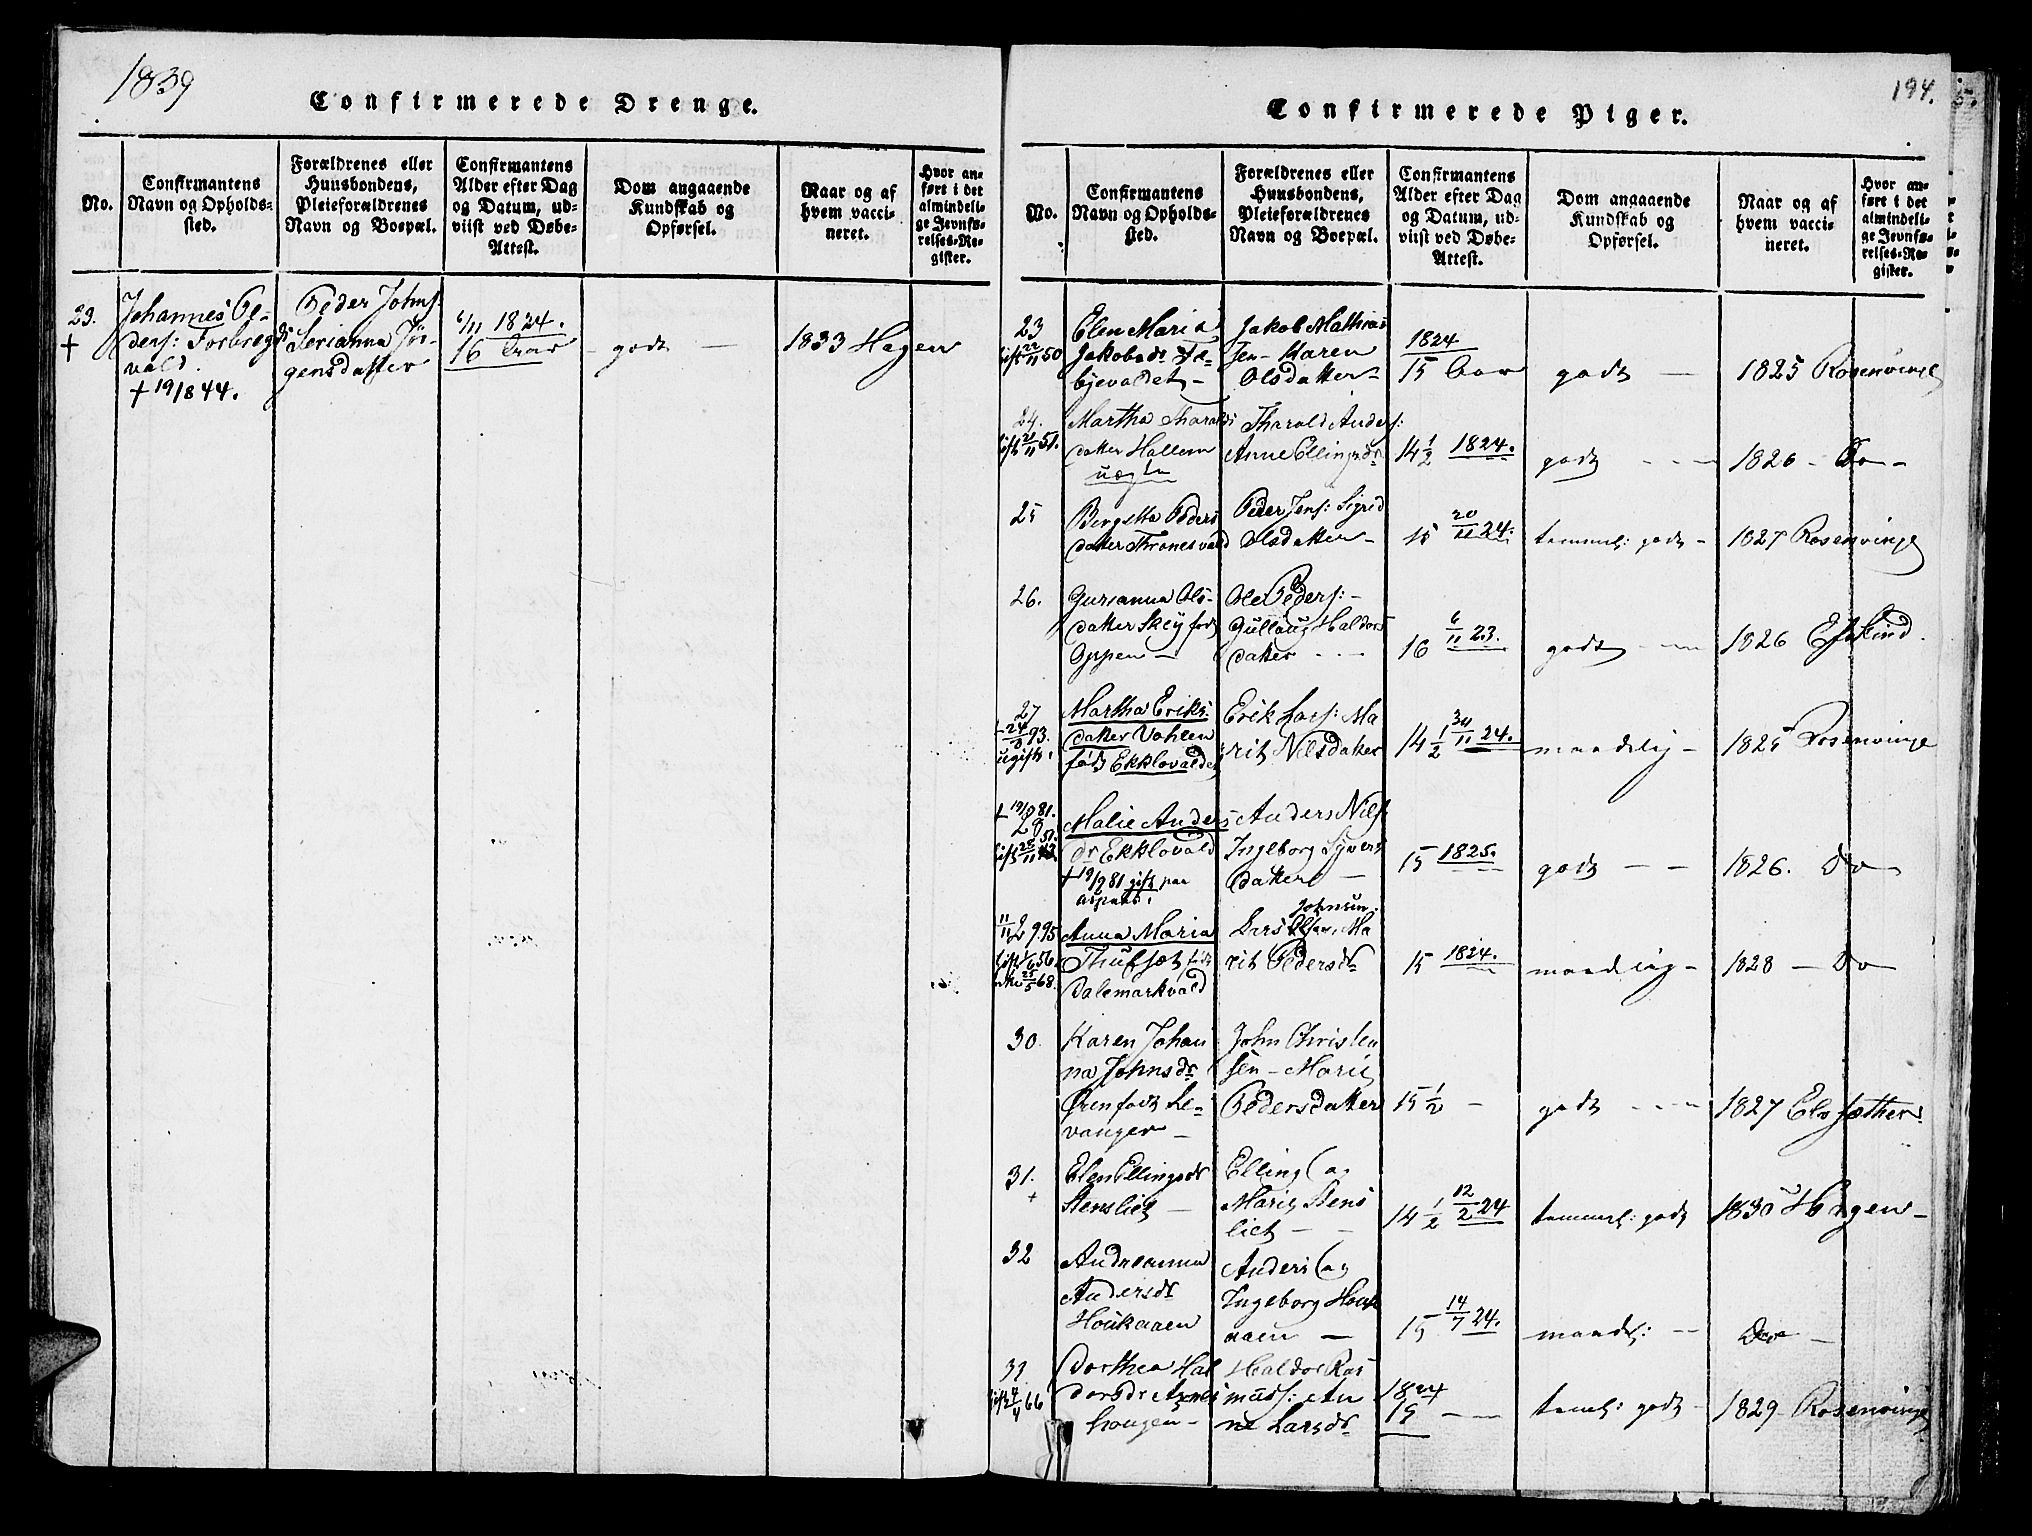 1839
Confirmerede Drenge.
No.
Confirmantens
Navn og Opholds-
sted.
Forældrenes eller
Huusbondens,
Pleieforældrenes
Navn og Boepæl.
Confirmantens
Alder efter Dag
og Datum, ud-
viist ved Døbe-
Attest.
Dom angaaende
Kundskab og
Opførsel.
Naar og af
hvem vacci-
neret.
Hvor an-
ført i det
almindeli-
ge Jevnfø-
relses-Re-
gister.
23.
†
Johannes Pe-
ders: Forbregds
vald.
† 19/8 44.
Peder Johns:
Serianna Jør-
gensdatter
6/11 1824.
16 Aar
godt —
1833 Hagen
194.
Confirmerede Piger.
No.
Confirmantens
Navn og Opholds-
sted.
Forældrenes eller
Huusbondens,
Pleieforældrenes
Navn og Boepæl.
Confirmantens
Alder efter Dag
og Datum, ud-
viist ved Døbe-
Attest.
Dom angaaende
Kundskab og
Opførsel.
Naar og af
hvem vacci-
neret.
Hvor an-
ført i det
almindeli-
ge Jevnfø-
relses-Re-
gister.
23
gift 22/11 50
Elen Maria
Jakobsdr Fæ-
byevaldet —
Jakob Mathias
sen — Karen
Olsdatter —
1824
15 Aar
godt —
1825 Rosenvinge
24.
gift 21/11 51.
Martha Tharalds
datter Hallem
uægte
Tharald Anders:
Anne Ellingsdr
14 1/2 1824.
godt - - -
1826 — Do —
25
Bergitta Peders
datter Thronesvald
Peder Jens: Sigrid
Olsdatter —
15 20/11 24.
temmel: godt —
1827 Rosenvinge
26.
Gurianna Ols-
datter Skey født
Oppem —
Ole Peders: —
Gullaug Haldors
datter - - -
16 6/11 23.
godt - - -
1826 Eskind.
27
† 24/8 93.
ugift.
Martha Eriks:
datter Vohlen
født Ekklovaldet
Erik Lars: Ma
rit Nilsdatter
14 1/2 24.
maadelig —
1825 Rosenvinge
† 19/9 81.
28
Malie Anders
dr Ekklovald
† 19/9 81 gift paa
Anders Nils:
Ingeborg Syvers
datter —
15 1825.
godt — —
1826. Do
29. 95
gift 56.
68.
Anna Maria
født
Dalemarkvald
Johnsen.
Lars Olsen, Ma
rit Pedersdr
15 1824.
maadelig —
1828 — Do
30.
Karen Johan
na Johnsdr
Øren født Le-
vanger —
John Christen
sen — Marit
Pedersdatter
15 1/2 —
godt - - -
1827 Elvsæther
31.
+
Elen Ellingsdr
Stensliet —
Elling og
Marit Stens
liet — —
14 1/2 12/2 24
temmel: godt
1830 Hagen —
32
Andreanna
Andersdr
Houkaaen
Anders og
Ingeborg Houk
aaen —
15 14/7 24.
maadel: —
Do —
33
gift 4/4 66
Dorthea Hal
dorsdr Arnes
hougen —
Haldor Ras
muss: An
ne Larsdr
1824
15 — —
temel: godt —
1829 — Rosenvinge